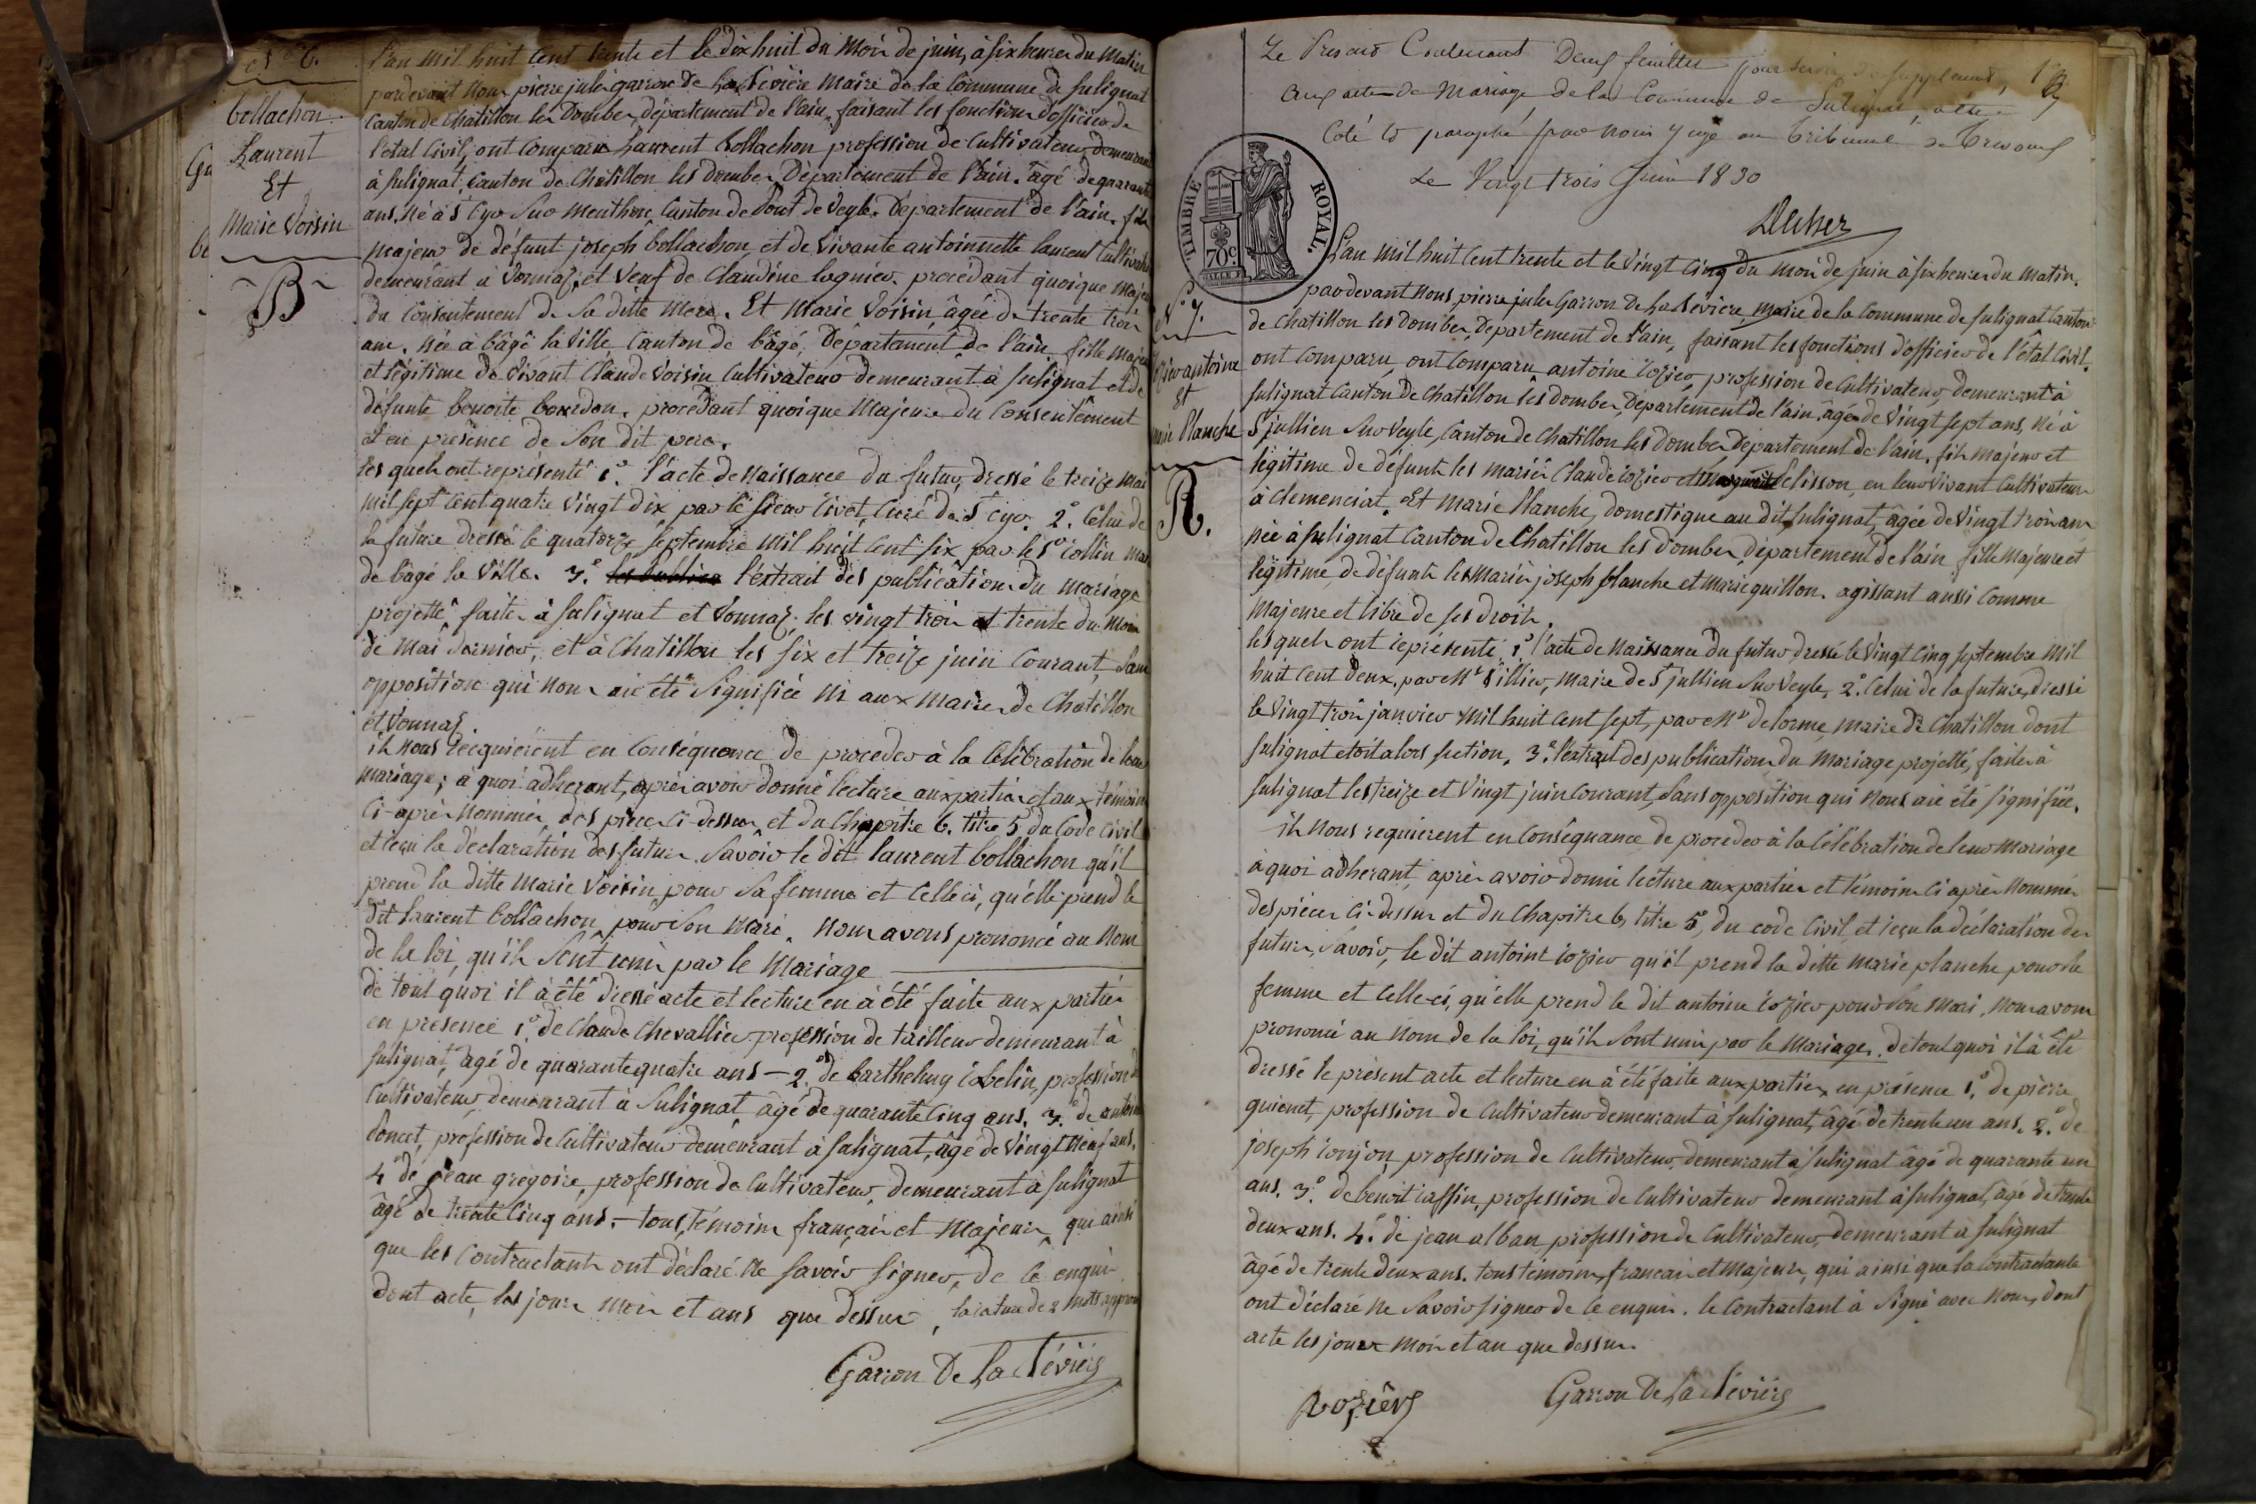 N° 6.
bollachon
Laurent
Et
Marie Voisin
B
L'an mil huit Cent trente et le dix huit du Moi de juin, à six heures du Matin
pardevant Nous pierre jules garron de La Sévière Maire de la Commune de Sulignat
Canton de Chatillon les Dombes, Département de l'ain, faisant les fonctions d'officier de
l'état Civil, ont Comparu Laurent bollachon profession de Cultivateur demeurant
à Sulignat, Canton de Chatillon les dombes, Département de l'ain. âgé de quarante
ans, Né à St Cyr Sur Menthon, Canton de Pont de Veyle, Département de l'ain, fils
Majeur de défunt joseph bollachon, et de Vivante antoinette laurent Cultivatrice
demeurant à Vonnaz, et Veuf de Claudine lognieu. procédant quoique Majeur
du Consentement de Sa ditte Mere. Et Marie Voisin âgée de trente trois
ans. Née à bâgé la Ville Canton de bâgé, Département de l'ain, fille Majeure
et légitime de Vivant Claude Voisin Cultivateur demeurant à Sulignat et de
défunte benoite bourdon. procédant quoique Majeure du Consentement
et en présence de Son dit pere.
les quels ont représenté 1°. l'acte de Naissance du futur, dressé le treize Mai
mil sept Cent quatre Vingt dix par le Sieur Civet, Curé de St Cyr. 2°. Celui de
la future dressé le quatorze Septembre Mil huit Cent Six par le Sr Collin Maire
de bâgé la Ville. 3°. les publica l'extrait des publications du Mariage
projetté, faites à Sulignat et Vonnaz, les vingt trois et trente du Mois
de Mai dernier, et à Chatillon les Six et treize juin Courant, Sans
opposition qui Nous aie été Signifiée Ni aux Maires de Chatillon
et Vonnaz
ils Nous requierent en Conséquence de proceder à la Célébration de leur
mariage; à quoi adherant, après avoir donné lecture aux parties et aux témoins
Ci-après Nommés, des pièces Ci-dessus et du Chapitre 6. titre 5 du Code Civil
et reçu la déclaration des futurs Savoir le dit laurent bollachon qu'il
prend la ditte Marie Voisin pour Sa femme et Celle ci, qu'elle prend le
dit Laurent bollachon, pour Son Mari. Nous avons prononcé au Nom
de la loi, qu'ils Sont unis par le Mariage
de tout quoi il à été dressé acte et lecture en à été faite aux parties
en présence 1°. de Claude Chevallier profession de tailleur demeurant à
Sulignat, âgé de quarante quatre ans – 2°. de barthelmy Cobelin, profession de
Cultivateur, demeurant à Sulignat âgé de quarante Cinq ans. 3°. de antoine
doncet, profession de Cultivateur demeurant à Sulignat, âgé de Vingt Neuf ans.
4°. de jean grégoire, profession de Cultivateur, demeurant à Sulignat
âgé de trente Cinq ans. – tous témoins français et Majeurs, qui ainsi
que les Contractants ont déclaré Ne Savoir Signer, de Ce enquis
dont acte, les jour Mois et ans que dessus, la rature de 2 Mots approuvée
Garron De La Sévière
Le Present Contenant Deux feuilles pour Servir de Supplement
aux actes de Mariage de la Commune de Sulignat, a été
Coté et paraphé par nous Juge au Tribunal de Trevoux
Le Vingt trois Juin 1830
TIMBRE ROYAL.
70 c.
N° 7.
antoine
Et
Marie Planche
R.
L'an Mil huit Cent trente et le Vingt Cinq du Moi de juin à six heures du Matin.
pardevant Nous, pierre jules Garron De La Sévière, Maire de la Commune de Sulignat Canton
de Chatillon les Dombes, Département de l'ain, faisant les fonctions d'officier de l'état Civil.
ont Comparu, ont Comparu antoine rozier, profession de Cultivateur, demeurant à
Sulignat Canton de Chatillon les dombes, Département de l'ain. âgé de Vingt Sept ans, Né à
St jullien Sur Veyle, Canton de Chatillon les dombes, Département de l'ain, fils majeur et
légitime de défunts les mariés Claude rozier et Clisson, en leur Vivant Cultivateurs
à Clemenciat. Et Marie Planche, domestique au dit Sulignat, âgée de Vingt trois ans
Née à Sulignat Canton de Chatillon les dombes, département de l'ain fille Majeure et
légitime de défunts les Mariés joseph planche et Marie guillon. agissant aussi Comme
Majeure et libre de Ses droits.
les quels ont représenté 1° l'acte de Naissance du futur dressé le Vingt Cinq Septembre Mil
huit Cent deux, par Mr Sillier, Maire de St jullien Sur Veyle, 2°. Celui de la future, dressé
le Vingt trois janvier Mil huit Cent Sept, par Mr delorme, Maire de Chatillon dont
Sulignat etoit alors Section. 3°. l'extrait des publications du Mariage projetté, faites à
Sulignat les treize et Vingt juin Courant, Sans opposition qui Nous aie été Signifiée.
ils Nous requierent en Conséquance de proceder à la Célébration de leur Mariage
à quoi adherant, après avoir donné lecture aux parties et témoins Ci après Nommés
des pièces Ci-dessus et du Chapitre 6, titre 5, du code Civil, et reçu la déclaration des
futurs, Savoir, le dit antoine rozier qu'il prend la ditte Marie planche pour Sa
femme et Celle-ci, qu'elle prend le dit antoine rozier pour Son Mari, Nous avons
prononcé au Nom de la loi, qu'ils Sont unis par le Mariage. de tout quoi il à été
dressé le présent acte et lecture en à été faite aux parties en présence 1°. de pierre
guienet, profession de Cultivateur demeurant à Sulignat, âgé de trente un ans. 2°. de
joseph conjon, profession de Cultivateur, demeurant à Sulignat âgé de quarante un
ans. 3°. de benoit raffin, profession de Cultivateur demeurant à Sulignat, âgé de trente
deux ans. 4°. de jean alban profession de Cultivateur, demeurant à Sulignat
âgé de trente deux ans. tous témoins, français et Majeurs, qui ainsi que la Contractante
ont déclaré Ne Savoir Signer de Ce enquis. le Contractant à Signé avec Nous, dont
acte les jour Mois et an que dessus.
Rozier
Garron De La Sévière